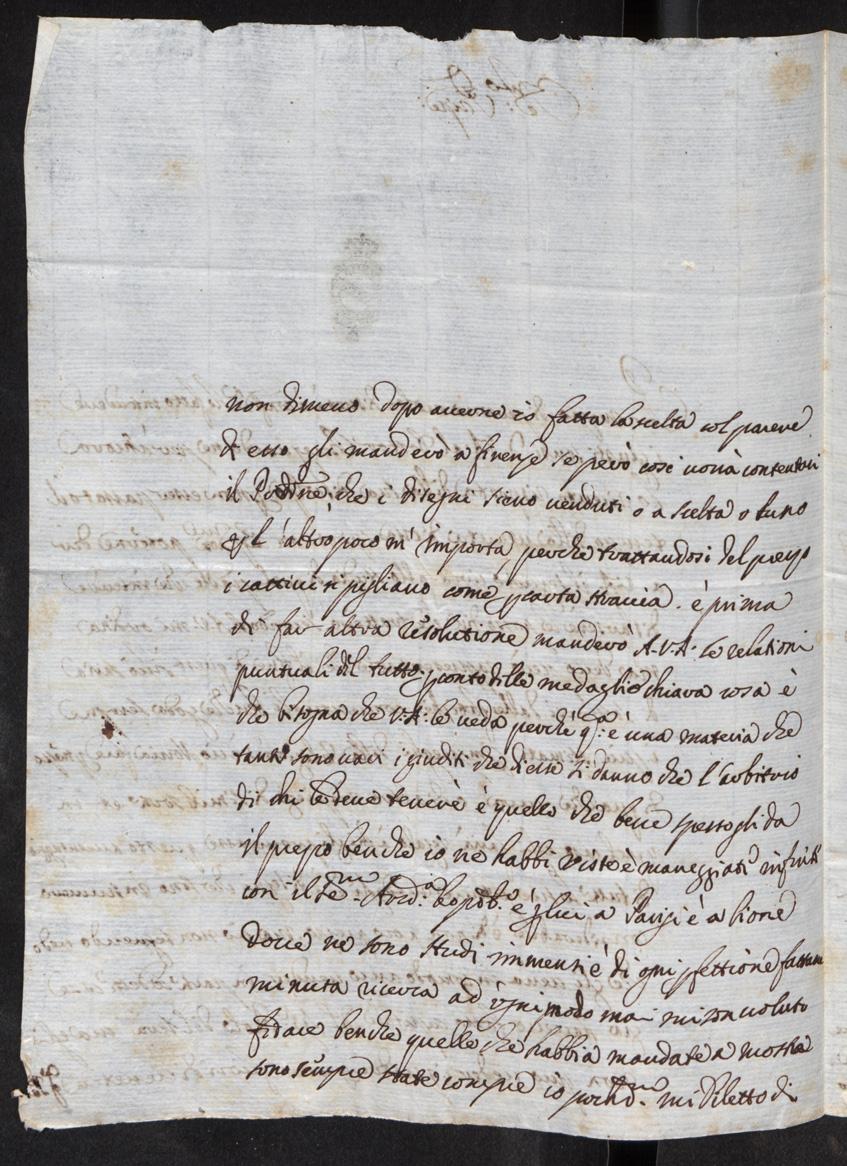 non dimeno dopo auerne io fatta la scelta col parere
di esso gli manderò a firenze se però così uorrà contentarsi
il Padrone, che i disegni sieno uenduti o a scelta o tutto
l'altro poco m'importa, perche trattandosi del prezzo
i cattiui si pigliano come carta straccia. è prima
di far altra resolutione manderò A.V.A. le relationi
puntuali del tutto, conto delle medaglie chiara cosa è
che bisogna che V.A. le ueda perche q.a è una materia che
tanti sono uari i giuditi che di esse si danno che l'arbitrio
di chi le deue tenere è quello che bene spesso gli da
il prezzo benche io ne habbi uiste è maneggiati infiniti
con il Se.mo Arcid.a Leopold.o è a Parigi è a Lione
doue ne sono studi immensi è di ogni fattane
minuta ricerca ad ogni modo mai mi son uoluto
fidare benche quelle che habbia mandate a mostra
sono sempre state compre io mi diletto di